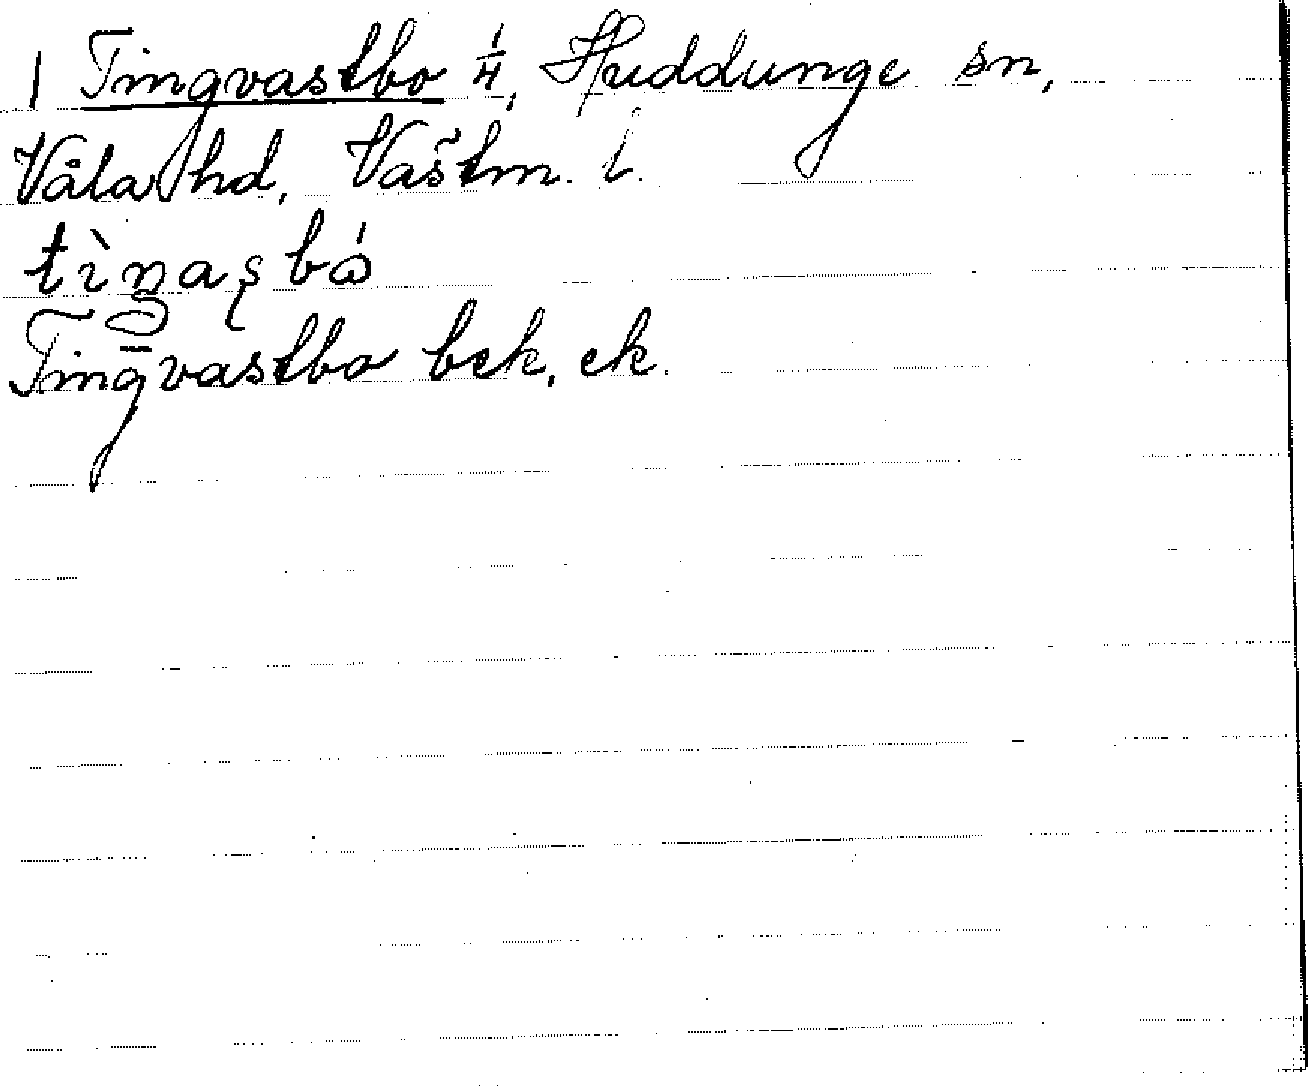 | Tingvastbo 1/4, Huddunge sn,
Våla hd, Västm. l.
Tingvastbo bek, ek.